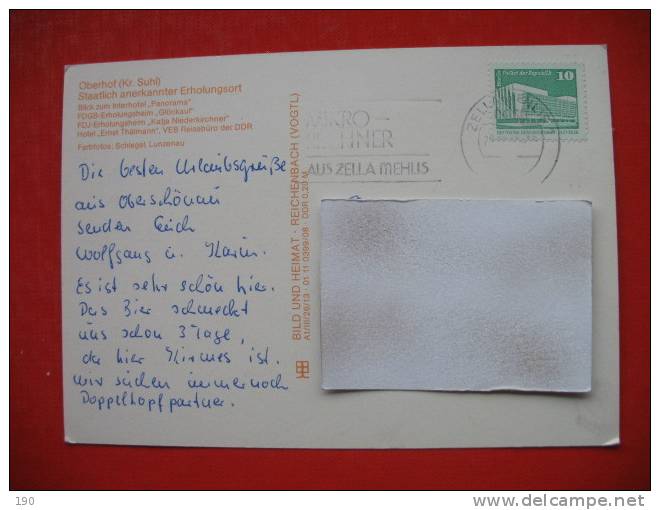 Oberhof (Kr. Suhl)
Staatlich anerkannter Erholungsort
Blick zum Interhotel „Panorama"
FDGB-Erholungsheim „Glückauf"
FDJ-Erholungsheim „Katja Niederkirchner"
Hotel „Ernst Thälmann", VEB Reisebüro der DDR
Farbfotos: Schlegel, Lunzenau
Die besten Urlaubsgrüße
aus Oberschönau
senden Euch
Wolfgang u. Karin.
Es ist sehr schön hier.
Das Bier schmeckt
uns schon 3 Tage,
da hier Kirmes ist.
Wir suchen immer noch
Doppelkopfpartner.
BILD UND HEIMAT · REICHENBACH (VOGTL)
A1/III/26/13 · 01 11 0399/08 · DDR 0,20 M
MIKRO-
RECHNER
AUS ZELLA MEHLIS
ZELLA-MEHLIS
Palast der Republik
10
190
www.delcampe.net